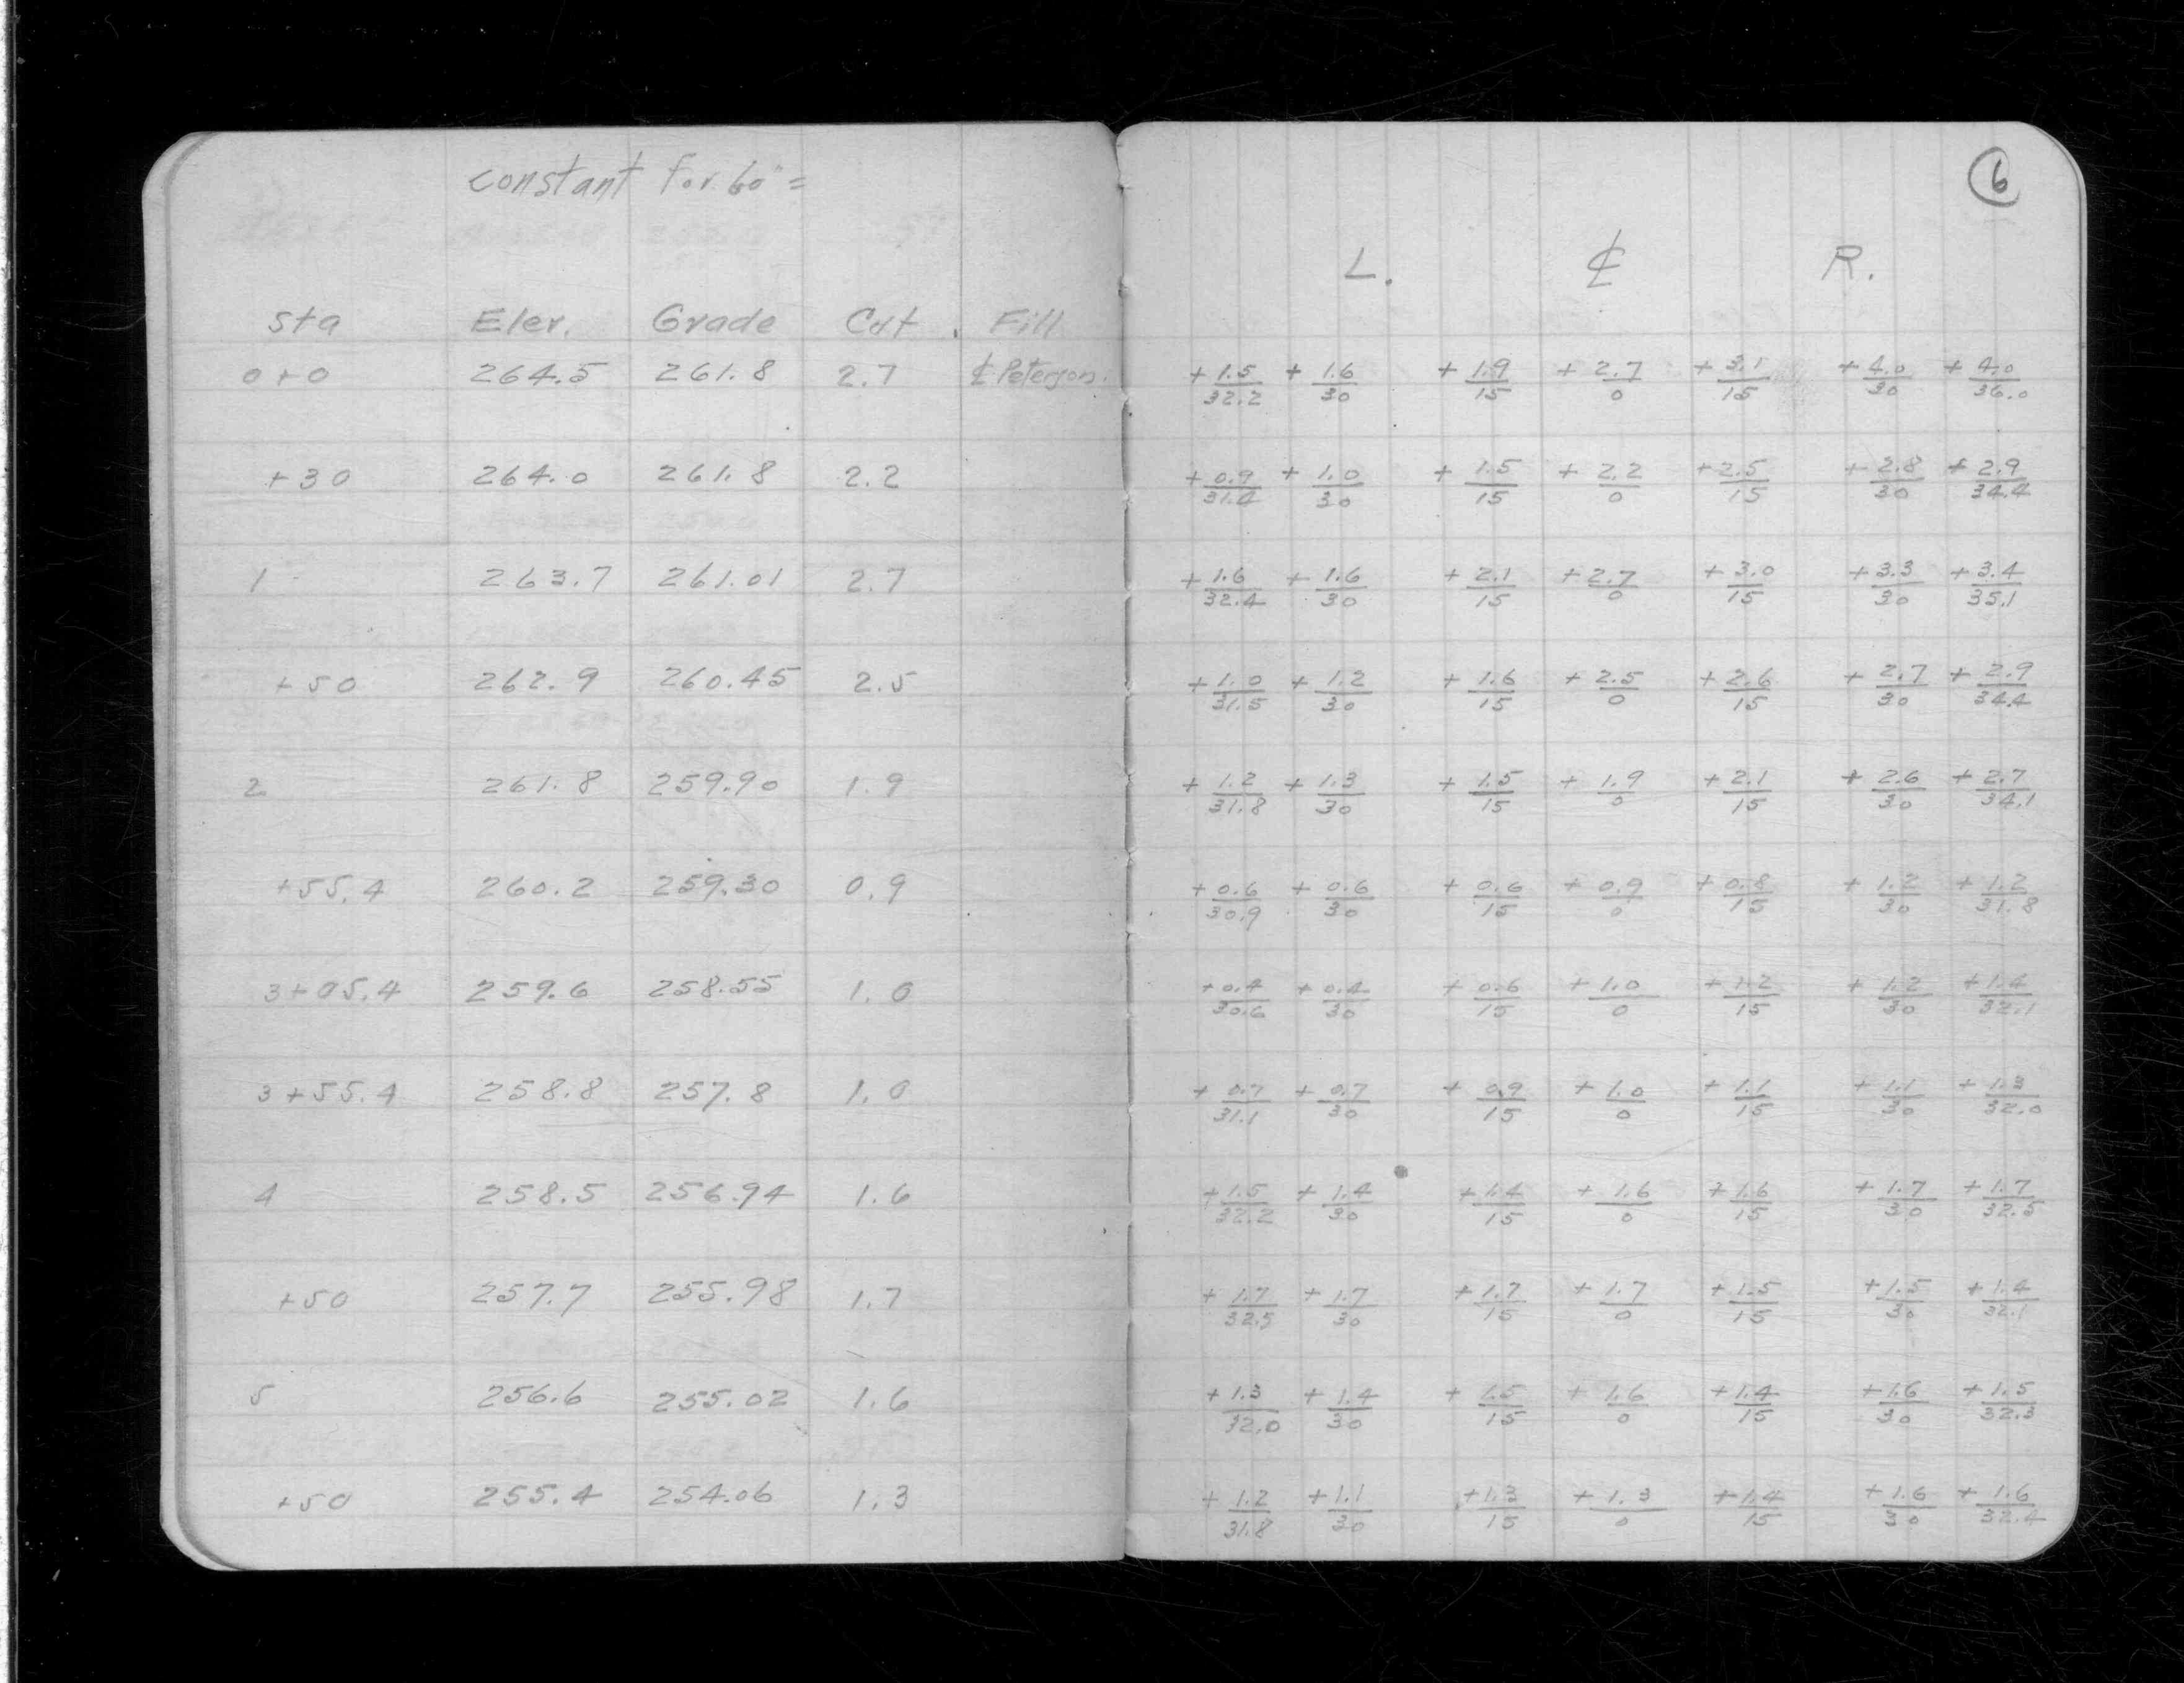 constant for 60' =
6
L. ℄ R.
Sta Elev. Grade Cut. Fill
0+0 264.5 261.8 2.7 ℄ Peterson. +1.5/32.2 +1.6/30 +1.9/15 +2.7/0 +3.1/15 +4.0/30 +4.0/36.0
+30 264.0 261.8 2.2 +0.9/31.4 +1.0/30 +1.5/15 +2.2/0 +2.5/15 +2.8/30 +2.9/34.4
1 263.7 261.01 2.7 +1.6/32.4 +1.6/30 +2.1/15 +2.7/0 +3.0/15 +3.3/30 +3.4/35.1
+50 262.9 260.45 2.5 +1.0/31.5 +1.2/30 +1.6/15 +2.5/0 +2.6/15 +2.7/30 +2.9/34.4
2 261.8 259.90 1.9 +1.2/31.8 +1.3/30 +1.5/15 +1.9/0 +2.1/15 +2.6/30 +2.7/34.1
+55.4 260.2 259.30 0.9 +0.6/30.9 +0.6/30 +0.6/15 +0.9/0 +0.8/15 +1.2/30 +1.2/31.8
3+05.4 259.6 258.55 1.0 +0.4/30.6 +0.4/30 +0.6/15 +1.0/0 +1.2/15 +1.2/30 +1.4/32.1
3+55.4 258.8 257.8 1.0 +0.7/31.1 +0.7/30 +0.9/15 +1.0/0 +1.1/15 +1.1/30 +1.3/32.0
4 258.5 256.94 1.6 +1.5/32.2 +1.4/30 +1.4/15 +1.6/0 +1.6/15 +1.7/30 +1.7/32.5
+50 257.7 255.98 1.7 +1.7/32.5 +1.7/30 +1.7/15 +1.7/0 +1.5/15 +1.5/30 +1.4/32.1
5 256.6 255.02 1.6 +1.3/32.0 +1.4/30 +1.5/15 +1.6/0 +1.4/15 +1.6/30 +1.5/32.3
+50 255.4 254.06 1.3 +1.2/31.8 +1.1/30 +1.3/15 +1.3/0 +1.4/15 +1.6/30 +1.6/32.4